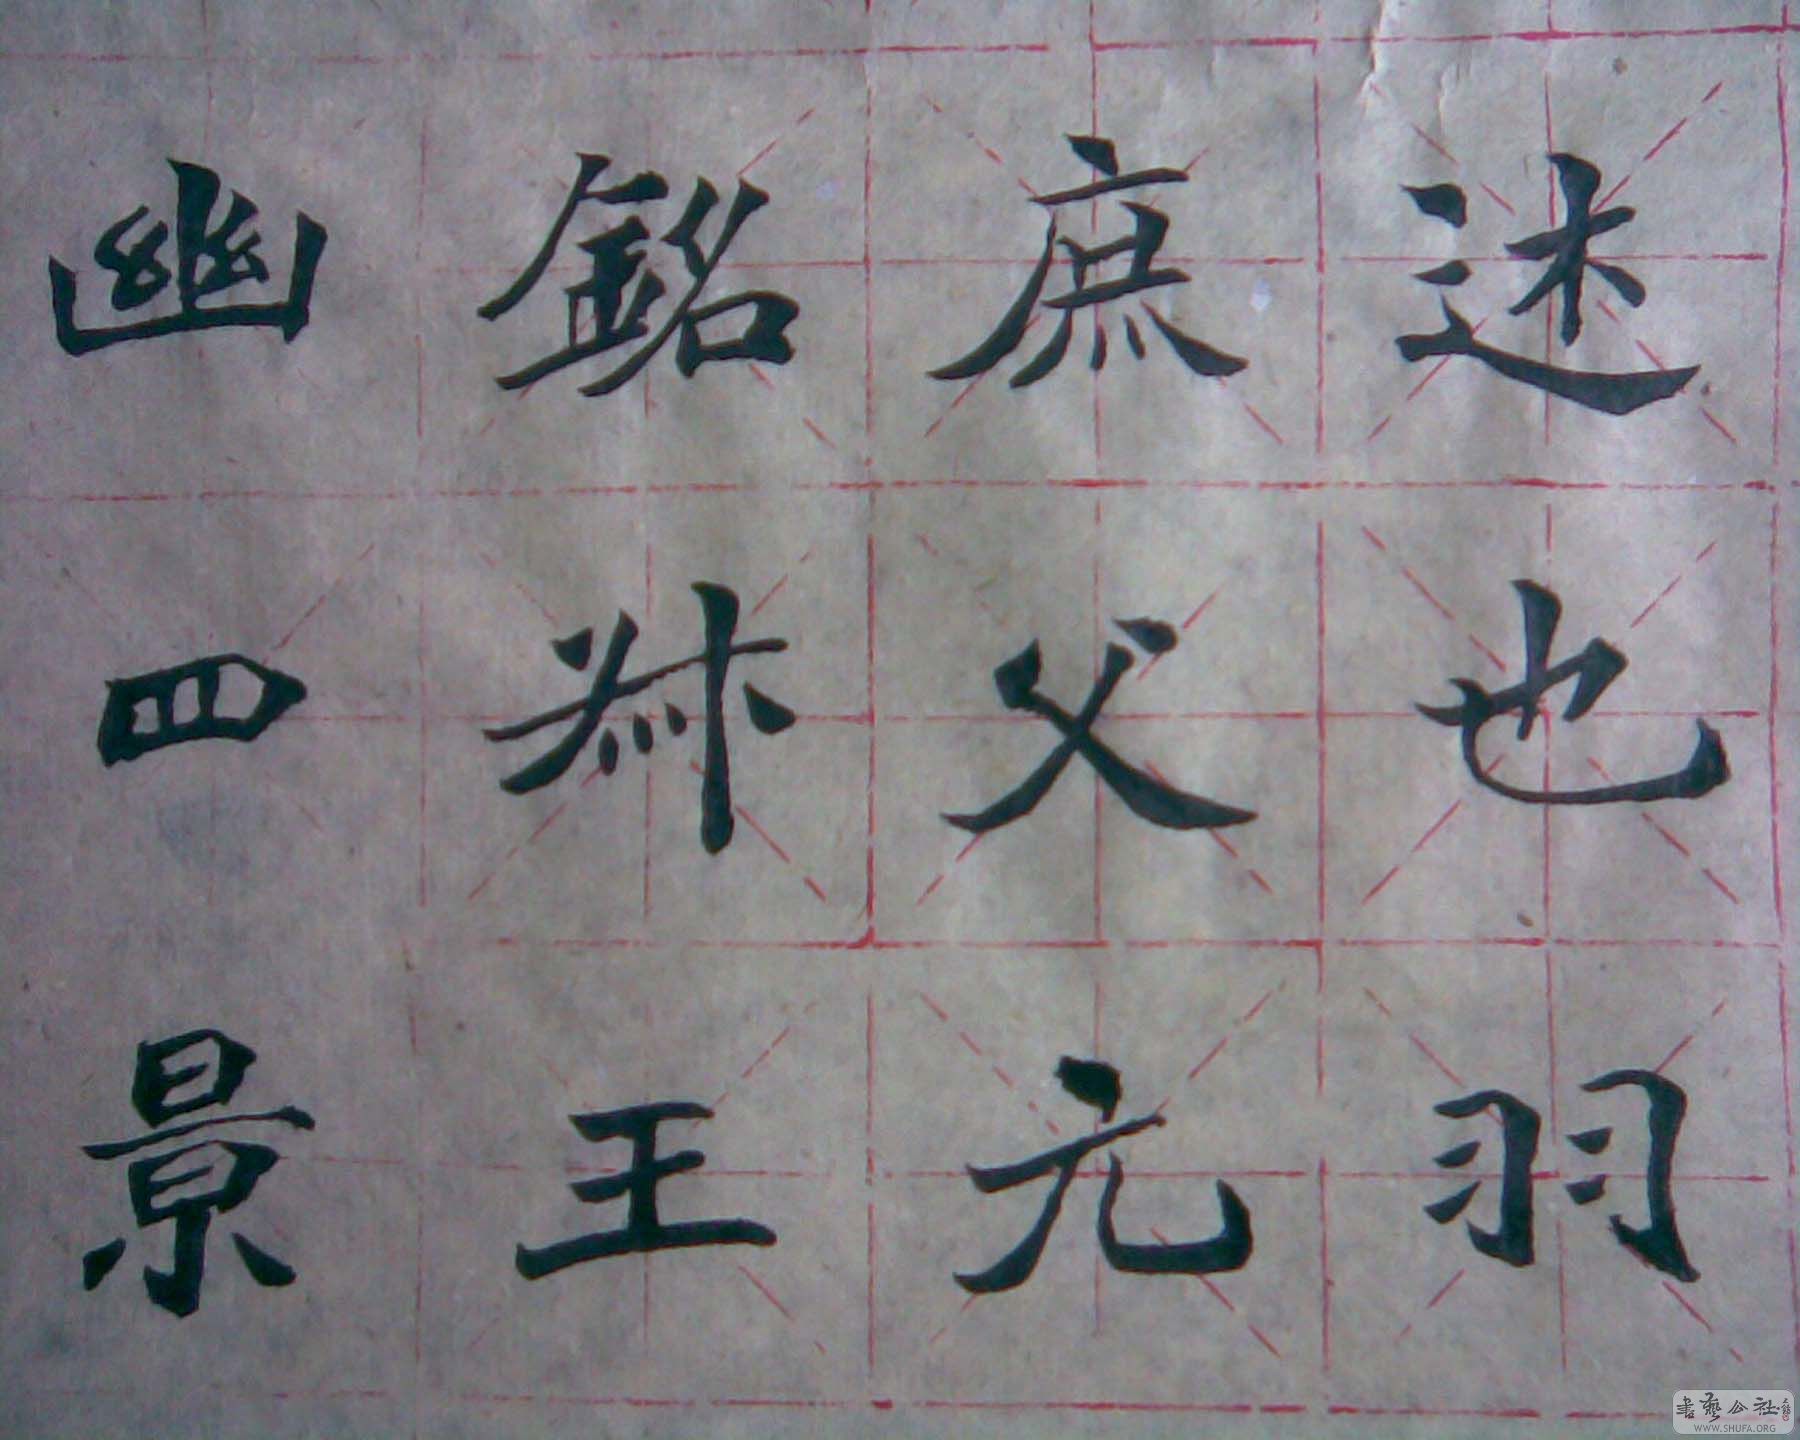 幽銘庶述
四叔父也
景王元羽
書藝公社
WWW.SHUFA.ORG